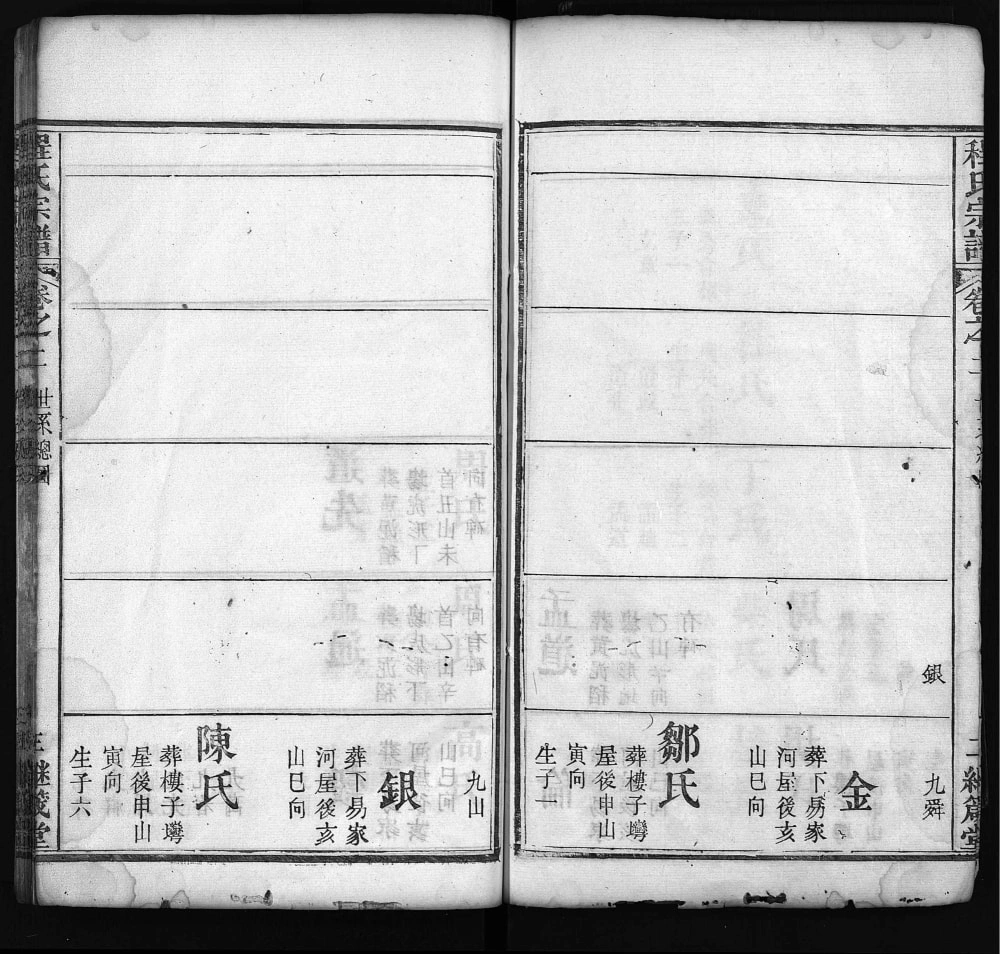 程氏宗譜
卷之二
銀
九舜
金
葬下易家
河屋後亥
山巳向
鄒氏
葬樓子塆
屋後申山
寅向
生子一
九山
銀
葬下易家
河屋後亥
山巳向
陳氏
葬樓子塆
屋後申山
寅向
生子六
程氏宗譜
卷之二
世系總圖